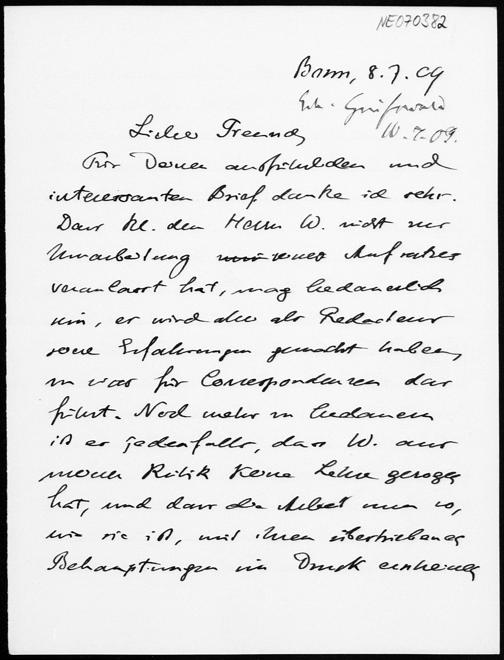 NE070382
Bonn, 8.7.09
Erh. Greifswald
10.7.09.
Lieber Freund,
Für Deinen ausführlichen und
interessanten Brief danke ich sehr.
Dass Kl. den Herrn W. nicht zur
Umarbeitung seines Aufsatzes
veranlasst hat, mag bedauerlich
sein, er wird aber als Redacteur
seine Erfahrungen gemacht haben,
zu was für Correspondenzen das
führt. Noch mehr zu bedauern
ist es jedenfalls, dass W. aus
meiner Kritik keine Lehre gezogen
hat, und dass die Arbeit nun so,
wie sie ist, mit ihren übertriebenen
Behauptungen im Druck erscheint